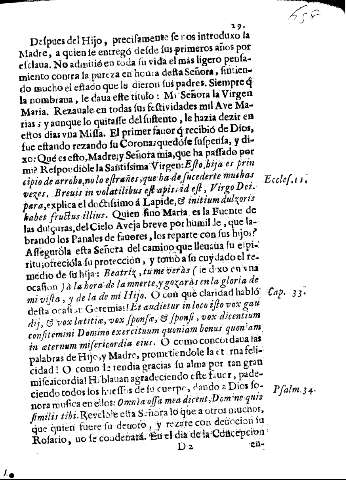 658
29.
Despues del Hijo, precisamente se nos introduxo la
Madre, a quien se entregò desde sus primeros años por
esclaua. No admitiò en toda su vida el más ligero pensa-
miento contra la pureza en honra desta Señora, sintien-
do mucho el estado que le dieron sus padres. Siempre q̃
la nombraua, le daua este titulo: Mi Señora la Virgen
Maria. Rezauale en todas sus festividades mil Ave Ma-
rias; y aunque lo quitasse del sustento, le hazia dezir en
estos dias vna Missa. El primer fauor q̃ recibiò de Dios,
fue estando rezando su Corona; quedóse suspensa, y di-
xo: Què es esto, Madre, y Señora mia, que ha passado por
mi? Respondiòle la Santissima Virgen: Esto, hija es prin
cipio de arrobo, no lo estrañes, que ha de sucederte muchas
vezes. Breuis in volatilibus est apis: id est, Virgo Dei-
para, explica el doctissimo à Lapide, & initium dulzoris
habet fructus illius. Quien sino Maria es la Fuente de
las dulçuras, del Cielo Aveja breve por humilde, que la-
brando los Panales de fauores, los reparte con sus hijos?
Asseguròla esta Señora del camino que lleuaua su espi-
ritu, ofreciòla su proteccion, y tomò a su cuydado el re-
medio de su hija: Beatriz, tu me veràs (le dixo en vna
ocasion) à la hora de la muerte, y gozaràs en la gloria de
mi vista, y de la de mi Hijo. O con què claridad hablò
desta ocasion Geremias! Et audietur in loco isto vox gau
dij, & vox lætitiæ, vox sponsæ, & sponsi, vox dicentium
confitemini Domino exercituum quoniam bonus quoniam
in æternum misericordia eius. O como concordaua las
palabras de Hijo, y Madre, prometiendole la eterna feli-
cidad! O como le rendia gracias su alma por tan gran
misericordia! Hablauan agradeciendo este fauor, pade-
ciendo todos los huessos de su cuerpo, dando a Dios so-
nora musica en ellos: Omnia ossa mea dicent, Domine quis
similis tibi. Revelòle esta Señora lo que a otros muchos,
que quien fuere su devoto, y rezare con devocion su
Rosario, no se condenarà. En el dia de la Concepcion
D 2
en-
Eccles. 11.
Cap. 33.
Psalm. 34.